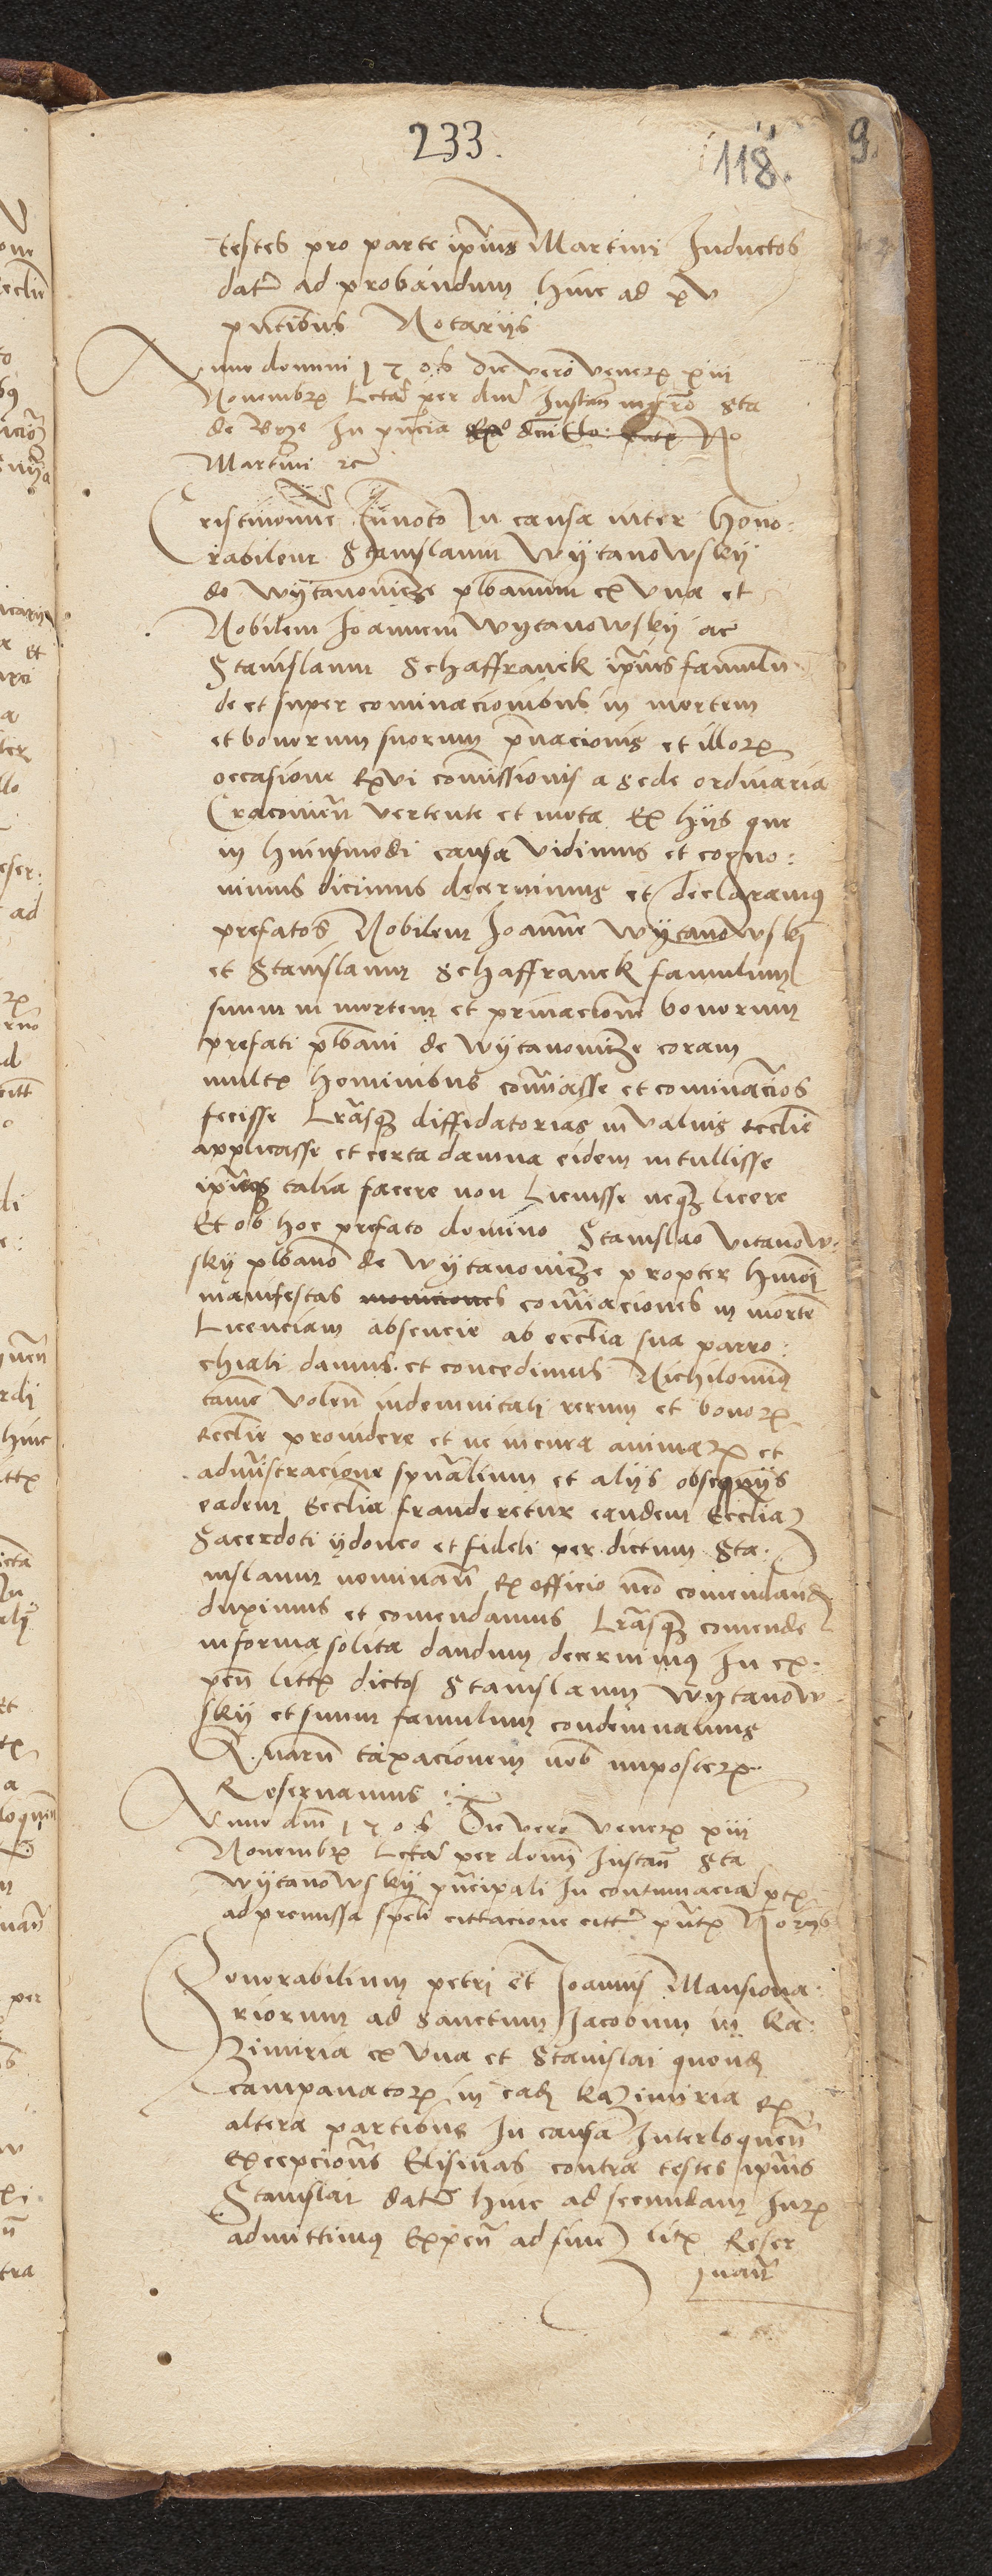 233.
118.
9.
testes pro parte ipsius Martini Inductos
datur ad probandum hinc ad xv
pntibus Notarijs
Anno domini 1506 die vero veneris xiii
Novembris Lecta per dnm Instan mgro Sta
de Brze In pncia No
Martini etc
Cristi nomine Invocato In causa inter Hono:
rabilem Stanislaum Wÿtanowskÿ
de Wÿtanowicze plbanum ex Una et
Nobilem Joannem Wytanowskÿ ac
Stanislaum Schaffranek ipsius famulum
de et super cominacionibus in mortem
et bonorum suorum privacionis et illorum
occasione ex vi comissionis a sede ordinaria
Cracovien vertente et mota Ex hijs que
in huiusmodi causa vidimus et cogno:
vimus dicimus decernimus et declaramus
prefatos Nobilem Joannem Wÿtanowskÿ
et Stanislaum Schaffranek famulum
suum in mortem et privacionem bonorum
prefati plbani de Wÿtanowicze coram
multis hominibus cominasse et cominacios
fecisse Lrasque diffidatorias in valvis ecclie
applicasse et certa damna eidem intullisse
ipsisque talia facere non Licuisse neque licere
Et ob hoc prefato domino Stanislao Vitanow:
skÿ plbano de Wÿtanowicze propter hmoi
manifestas moniciones cominaciones in mortem
Licenciam absencie ab ecclia sua parro:
chiali damus et concedimus Nichilominus
tamen Volen indemnitati rerum et bonorum
Ecclie providere et ne in cura animarum et
administracione spualium et alijs obsequijs
eadem Ecclia fraudaretur eandem Eccliam
Sacerdoti ÿdoneo et fideli per dictum Sta:
nislaum nominan Ex officio nro comendand
duximus et comendamus Lrasque comende
in forma solita dandum decernimus In ex:
pen litis dictos Stanislaum Wytanow:
skÿ et suum famulum condemnamus
Quarum taxacionem nob imposterum
Reservamus
Anno dni 1506 Die vero veneris xiii
Novembris Lecta per domin Instan Sta
Wÿtanowskÿ pncipali In contumacia ptis
ad premissa speli cittacione citt pntibus Norijs
Honorabilium petri et Joannis Mansiona:
riorum ad Sanctum Jacobum in Ka:
zimiria ex Una et Stanislai quond
campanatoris in ead Kazimiria Ex
altera partibus In causa Interloquen
Excepciones Elisivas contra testes ipsius
Stanislai datas hinc ad secundam Iuris
admittimus Expen ad finem litis Reser
van